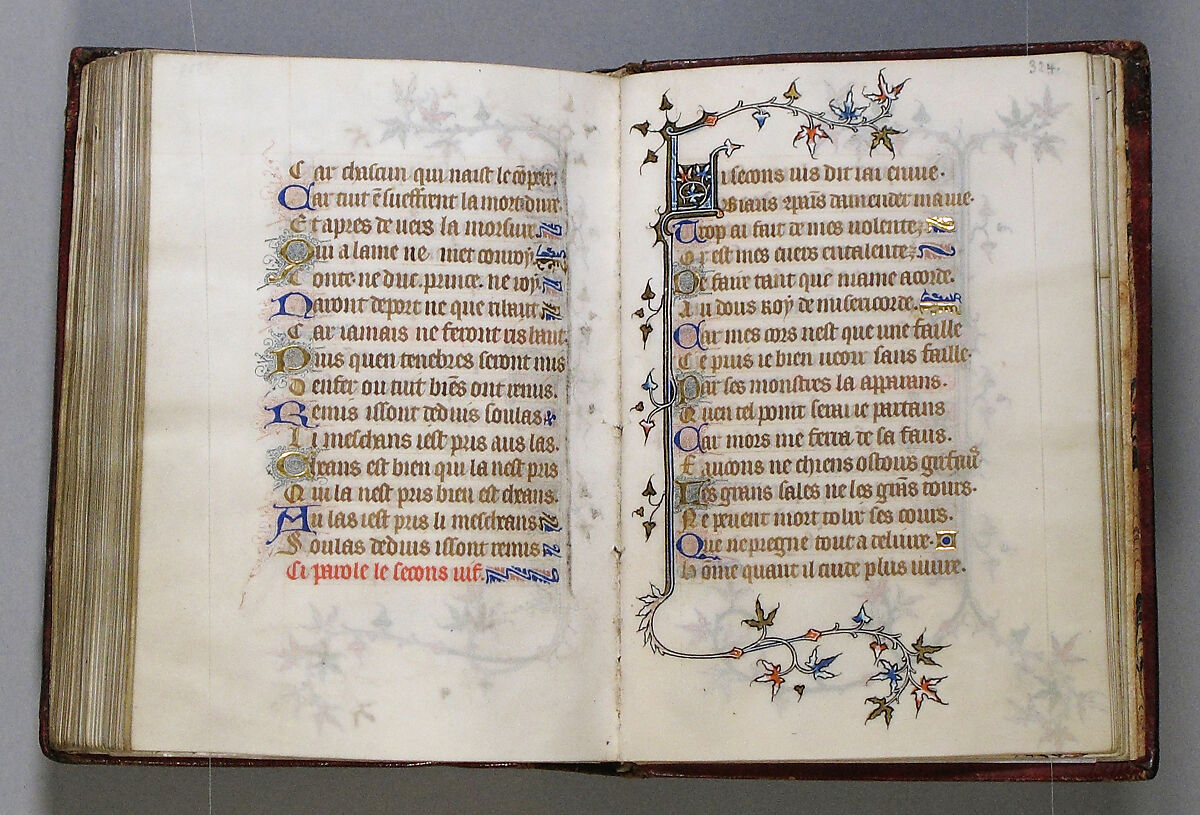 Car chascun qui naist le cōpere.
Car tuit ē sueffrent la mort dure
Et apres de vers la morsure.
Qui a lame ne met conuoy.
Conte ne duc. prince. ne roy.
Naront deport ne que ribaut
Car iamais ne feront ris baut.
Puis quen tenebres seront mis
Denfer ou tuit biēs ont remis.
Remis issont deduis soulas
Li meschans iest pris aus las.
Cheans est bien qui la nest pris
Qui la nest pris bien est cheans.
Au las iest pris li mescheans
Soulas deduis issont remis
Ci parole le secons uif.
324.
Li secons uis dit iai enuie.
damender ma uie.
Trop ai fait de mes uolentez
Or est mes cuers entalentez
De faire tant que mame acorde.
Au dous roy de misericorde.
Car mes cors nest que une faille
Ce puis ie bien ueoir sans faille.
Par ses monstres la apparans.
Quen tel point serai ie parans
Car mors me ferra de sa faus.
Faucons ne chiens ostours
Les grans sales ne les grās tours.
Ne peuent mort tolir ses cours.
Que ne pregne tout a deliure.
Hōme quant il cuide plus uiure.